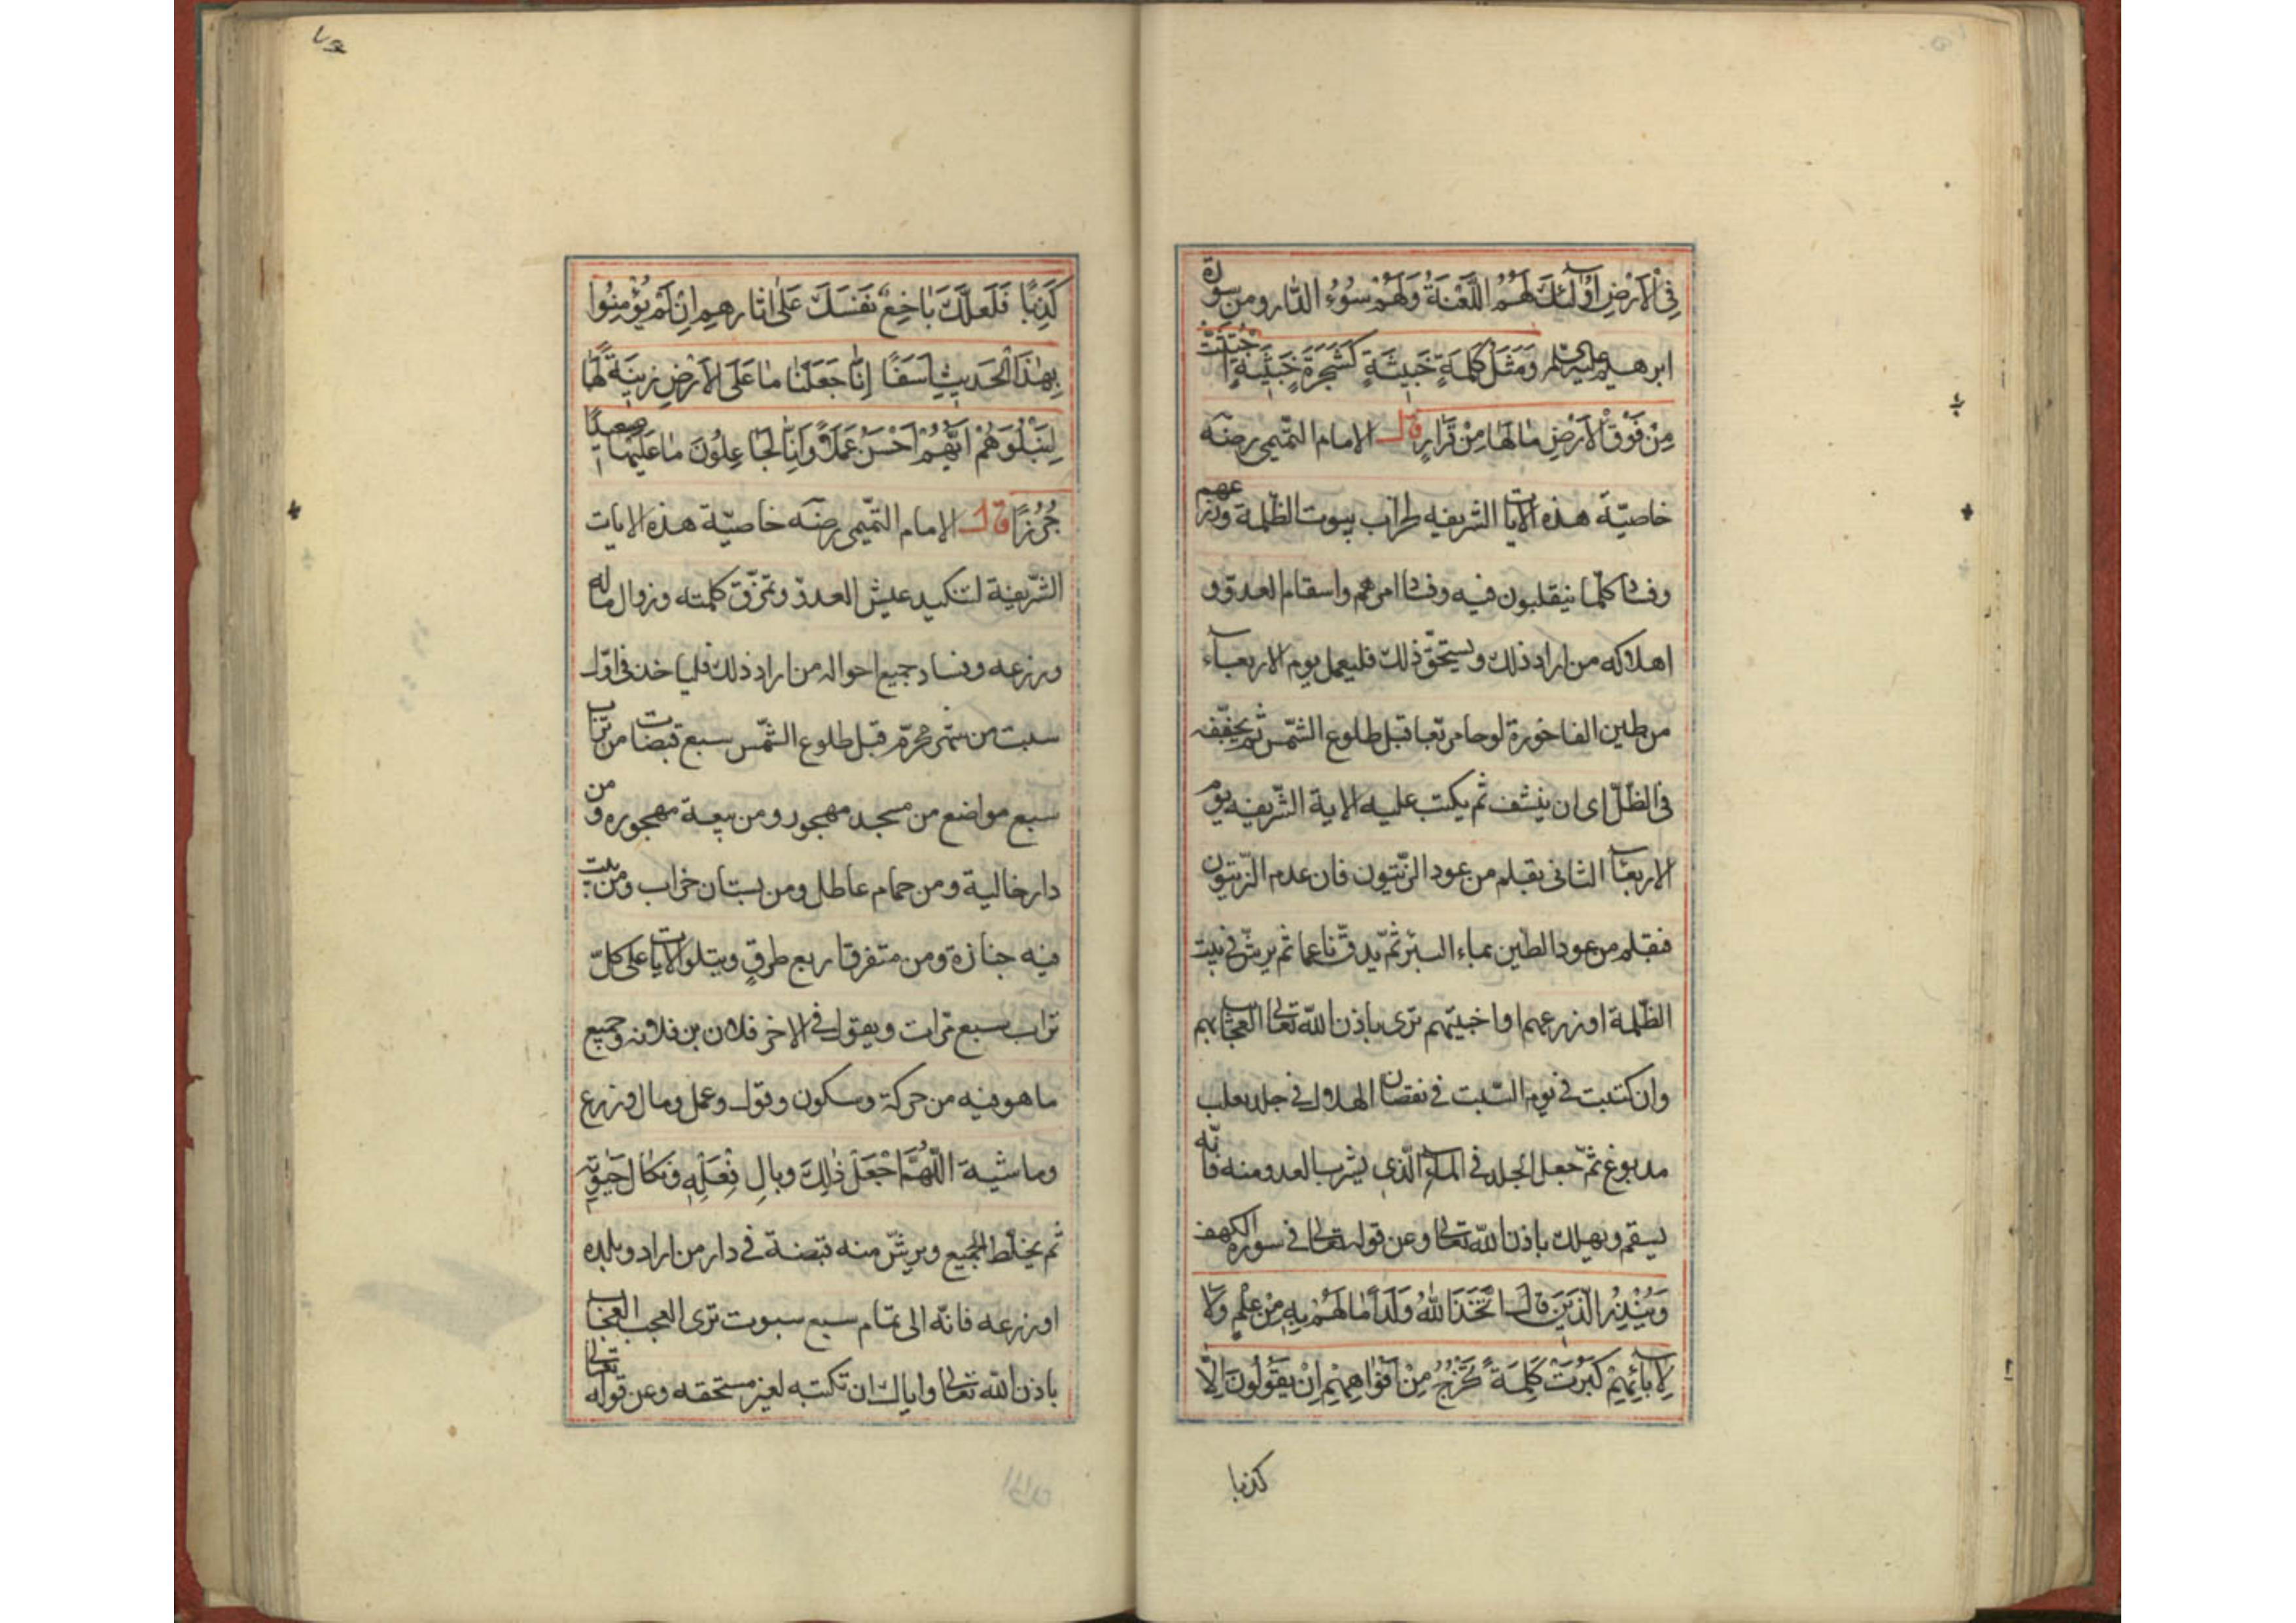 فِي الْاَرْضِ اُولٰٓئِكَ لَهُمُ اللَّعْنَةُ وَلَهُمْ سُوءُ الدَّارِ ومن سورة
ابرهيم عليه السلم وَمَثَلُ كَلِمَةٍ خَبِيثَةٍ كَشَجَرَةٍ خَبِيثَةٍ اجْتُثَّتْ
مِنْ فَوْقِ الْاَرْضِ مَا لَهَا مِنْ قَرَارٍ قال الامام التّميمى رضه
خاصيّة هذه الايات الشريفه لخراب بيوت الظلمة وزرعهم
وفساد كلّما ينقلبون فيه وفساد امرهم واسقام العدوّ و
اهلاكه من اراد ذلك ويستحقّ ذلك فليعمل يوم الاربعآء
من طين الفاخورة لوحا مربّعا قبل طلوع الشّمس ثم يجفّفه
فى الظلّ اى ان ينشف ثم يكتب عليه الاية الشّريفه يوم
الاربعآء الثانى بقلم من عود الزّيتون فان عدم الزّيتون
فقلم من عود الطين بماء البئر ثمّ يدقّ ناعما ثم يرشّ فى بيت
الظلمة او زرعهم او اخبيتهم ترى باذن اللّه تعالى العجائب بهم
وان كتبت فى يوم السّبت فى نقصان الهلال فى جلد ثعلب
مدبوغ ثمّ جعل الجلد فى المآء الّذى يشرب العدو منه فانّه
يسقم ويهلك باذن اللّه تعالى وعن قوله تعالى فى سورة الكهف
وَيُنْذِرَ الَّذِينَ قَالُوا اتَّخَذَ اللّٰهُ وَلَدًا مَا لَهُمْ بِهِ مِنْ عِلْمٍ وَلَا
لِاٰبَآئِهِمْ كَبُرَتْ كَلِمَةً تَخْرُجُ مِنْ اَفْوَاهِهِمْ اِنْ يَقُولُونَ اِلَّا
كذبا
كَذِبًا فَلَعَلَّكَ بَاخِعٌ نَفْسَكَ عَلٰى اٰثَارِهِمْ اِنْ لَمْ يُؤْمِنُوا
بِهٰذَا الْحَدِيثِ اَسَفًا اِنَّا جَعَلْنَا مَا عَلَى الْاَرْضِ زِينَةً لَهَا
لِنَبْلُوَهُمْ اَيُّهُمْ اَحْسَنُ عَمَلًا وَاِنَّا لَجَاعِلُونَ مَا عَلَيْهَا صَعِيدًا
جُرُزًا قال الامام التّميمى رضه خاصيّة هذه الايات
الشّريفة لتنكيد عيش العدوّ وتمزّق كلمته وزوال ماله
وزرعه وفساد جميع احواله من اراد ذلك فلياخذ فى اوّل
سبت من شهر محرّم قبل طلوع الشّمس سبع قبضات من تراب
سبع مواضع من مسجد مهجور ومن بيعة مهجوره ومن
دار خالية ومن حمام عاطل ومن بستان خراب ومن بيت
فيه جنازة ومن متفرق اربع طرقٍ ويتلو الايات على كلّ
تراب سبع مرّات ويقول فى الاخر فلان بن فلانه وجميع
ما هو فيه من حركة وسكون وقول وعمل ومال وزرع
وماشية اَللّٰهُمَّ اجْعَلْ ذٰلِكَ وبالِ فِعْلِهِ وَنَكَالَ
ثم يخلّط الجميع ويرشّ منه قبضة فى دار من اراد وبلده
او زرعه فانّه الى تمام سبع سبوت ترى العجب العجاب
باذن اللّه تعالى واياك ان تكتبه لغير مستحقه وعن قوله تعالى